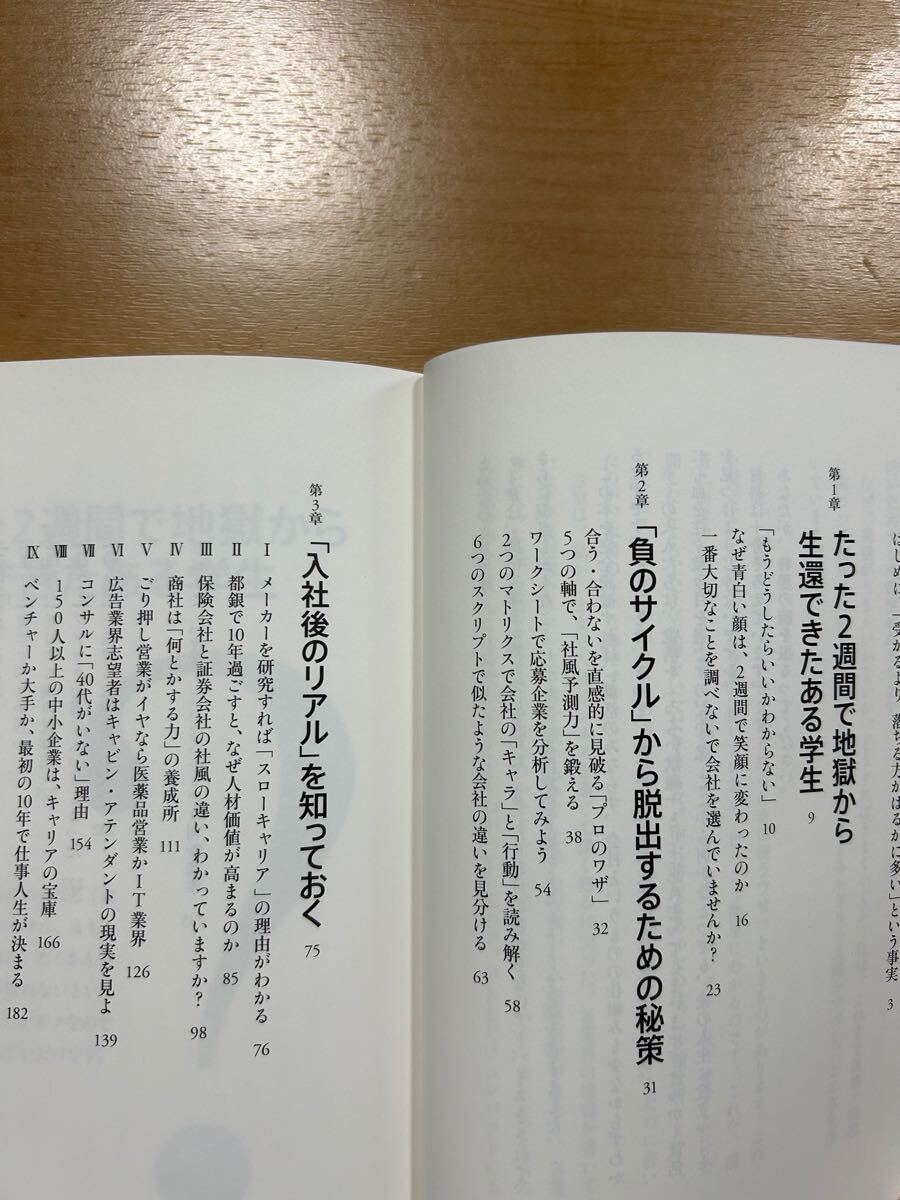 はじめに 「受かるより、落ちる方がはるかに多い」という事実 3
第1章
たった2週間で地獄から
生還できたある学生 9
「もうどうしたらいいかわからない」 10
なぜ青白い顔は、2週間で笑顔に変わったのか 16
一番大切なことを調べないで会社を選んでいませんか? 23
第2章
「負のサイクル」から脱出するための秘策 31
合う・合わないを直感的に見破る「プロのワザ」 32
5つの軸で、「社風予測力」を鍛える 38
ワークシートで応募企業を分析してみよう 54
2つのマトリクスで会社の「キャラ」と「行動」を読み解く 58
6つのスクリプトで似たような会社の違いを見分ける 63
第3章
「入社後のリアル」を知っておく 75
Ⅰ メーカーを研究すれば「スローキャリア」の理由がわかる 76
Ⅱ 都銀で10年過ごすと、なぜ人材価値が高まるのか 85
Ⅲ 保険会社と証券会社の社風の違い、わかっていますか? 98
Ⅳ 商社は「何とかする力」の養成所 111
Ⅴ ごり押し営業がイヤなら医薬品営業かIT業界 126
Ⅵ 広告業界志望者はキャビン・アテンダントの現実を見よ 139
Ⅶ コンサルに「40代がいない」理由 154
Ⅷ 150人以上の中小企業は、キャリアの宝庫 166
Ⅸ ベンチャーか大手か、最初の10年で仕事人生が決まる 182
2週間で地獄から